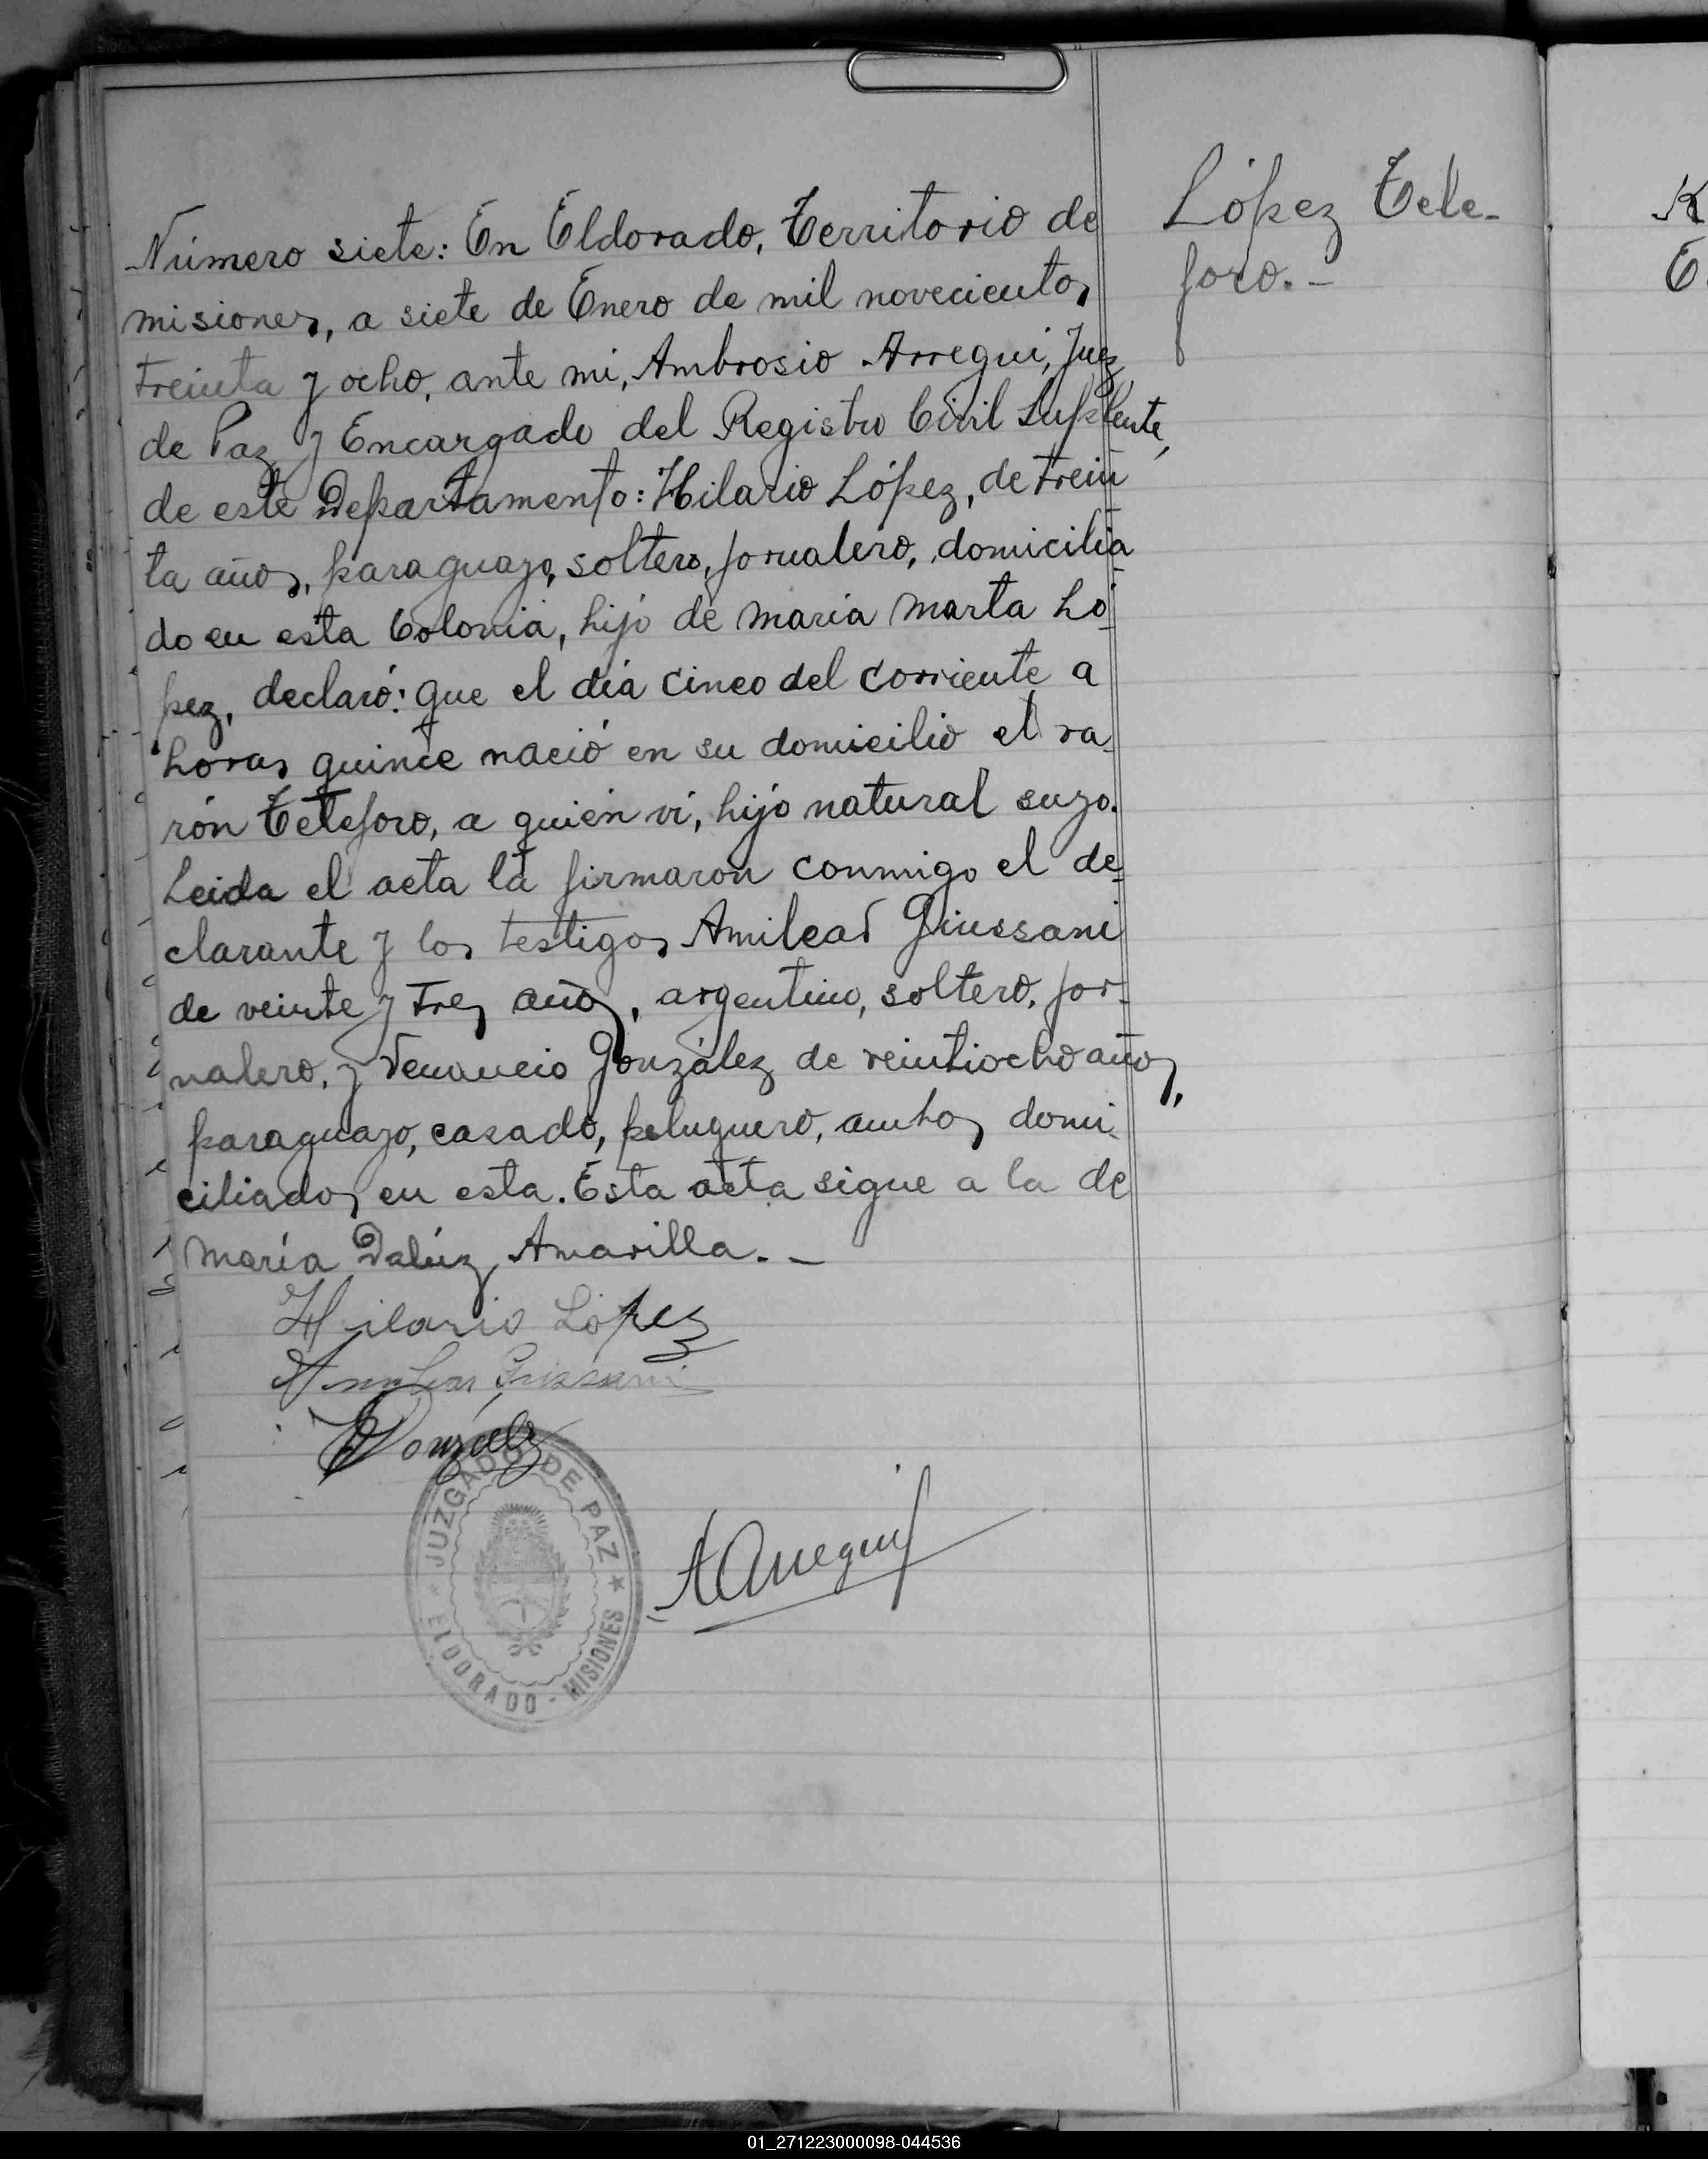 López Tele-
foro.-
Número siete: En Eldorado, Territorio de
misiones, a siete de Enero de mil novecientos
treinta y ocho, ante mi, Ambrosio Arregui, Juez
de Paz y Encargado del Registro Civil Suplente,
de este Departamento: Hilario López, de trein
ta años, paraguayo, soltero, jornalero, domicilia
do en esta Colonia, hijo de maría marta Ló
pez, declaró: que el día cinco del corriente a
horas quince nació en su domicilio el va
rón Telesforo, a quién ví, hijo natural suyo.
Leida el acta la firmaron conmigo el de
clarante y los testigos Amilcar Giussani
de veinte y tres años, argentino, soltero, jor-
nalero, y Venancio González de veintiocho años,
paraguayo, casado, peluquero, ambos domi
ciliados en esta. Esta acta sigue a la de
maría Dalúz Amarilla.-
Hilario López
Amilcar Giussani
González
JUZGADO DE PAZ
ELDORADO - MISIONES
AArregui
K
E.
01_271223000098-044536